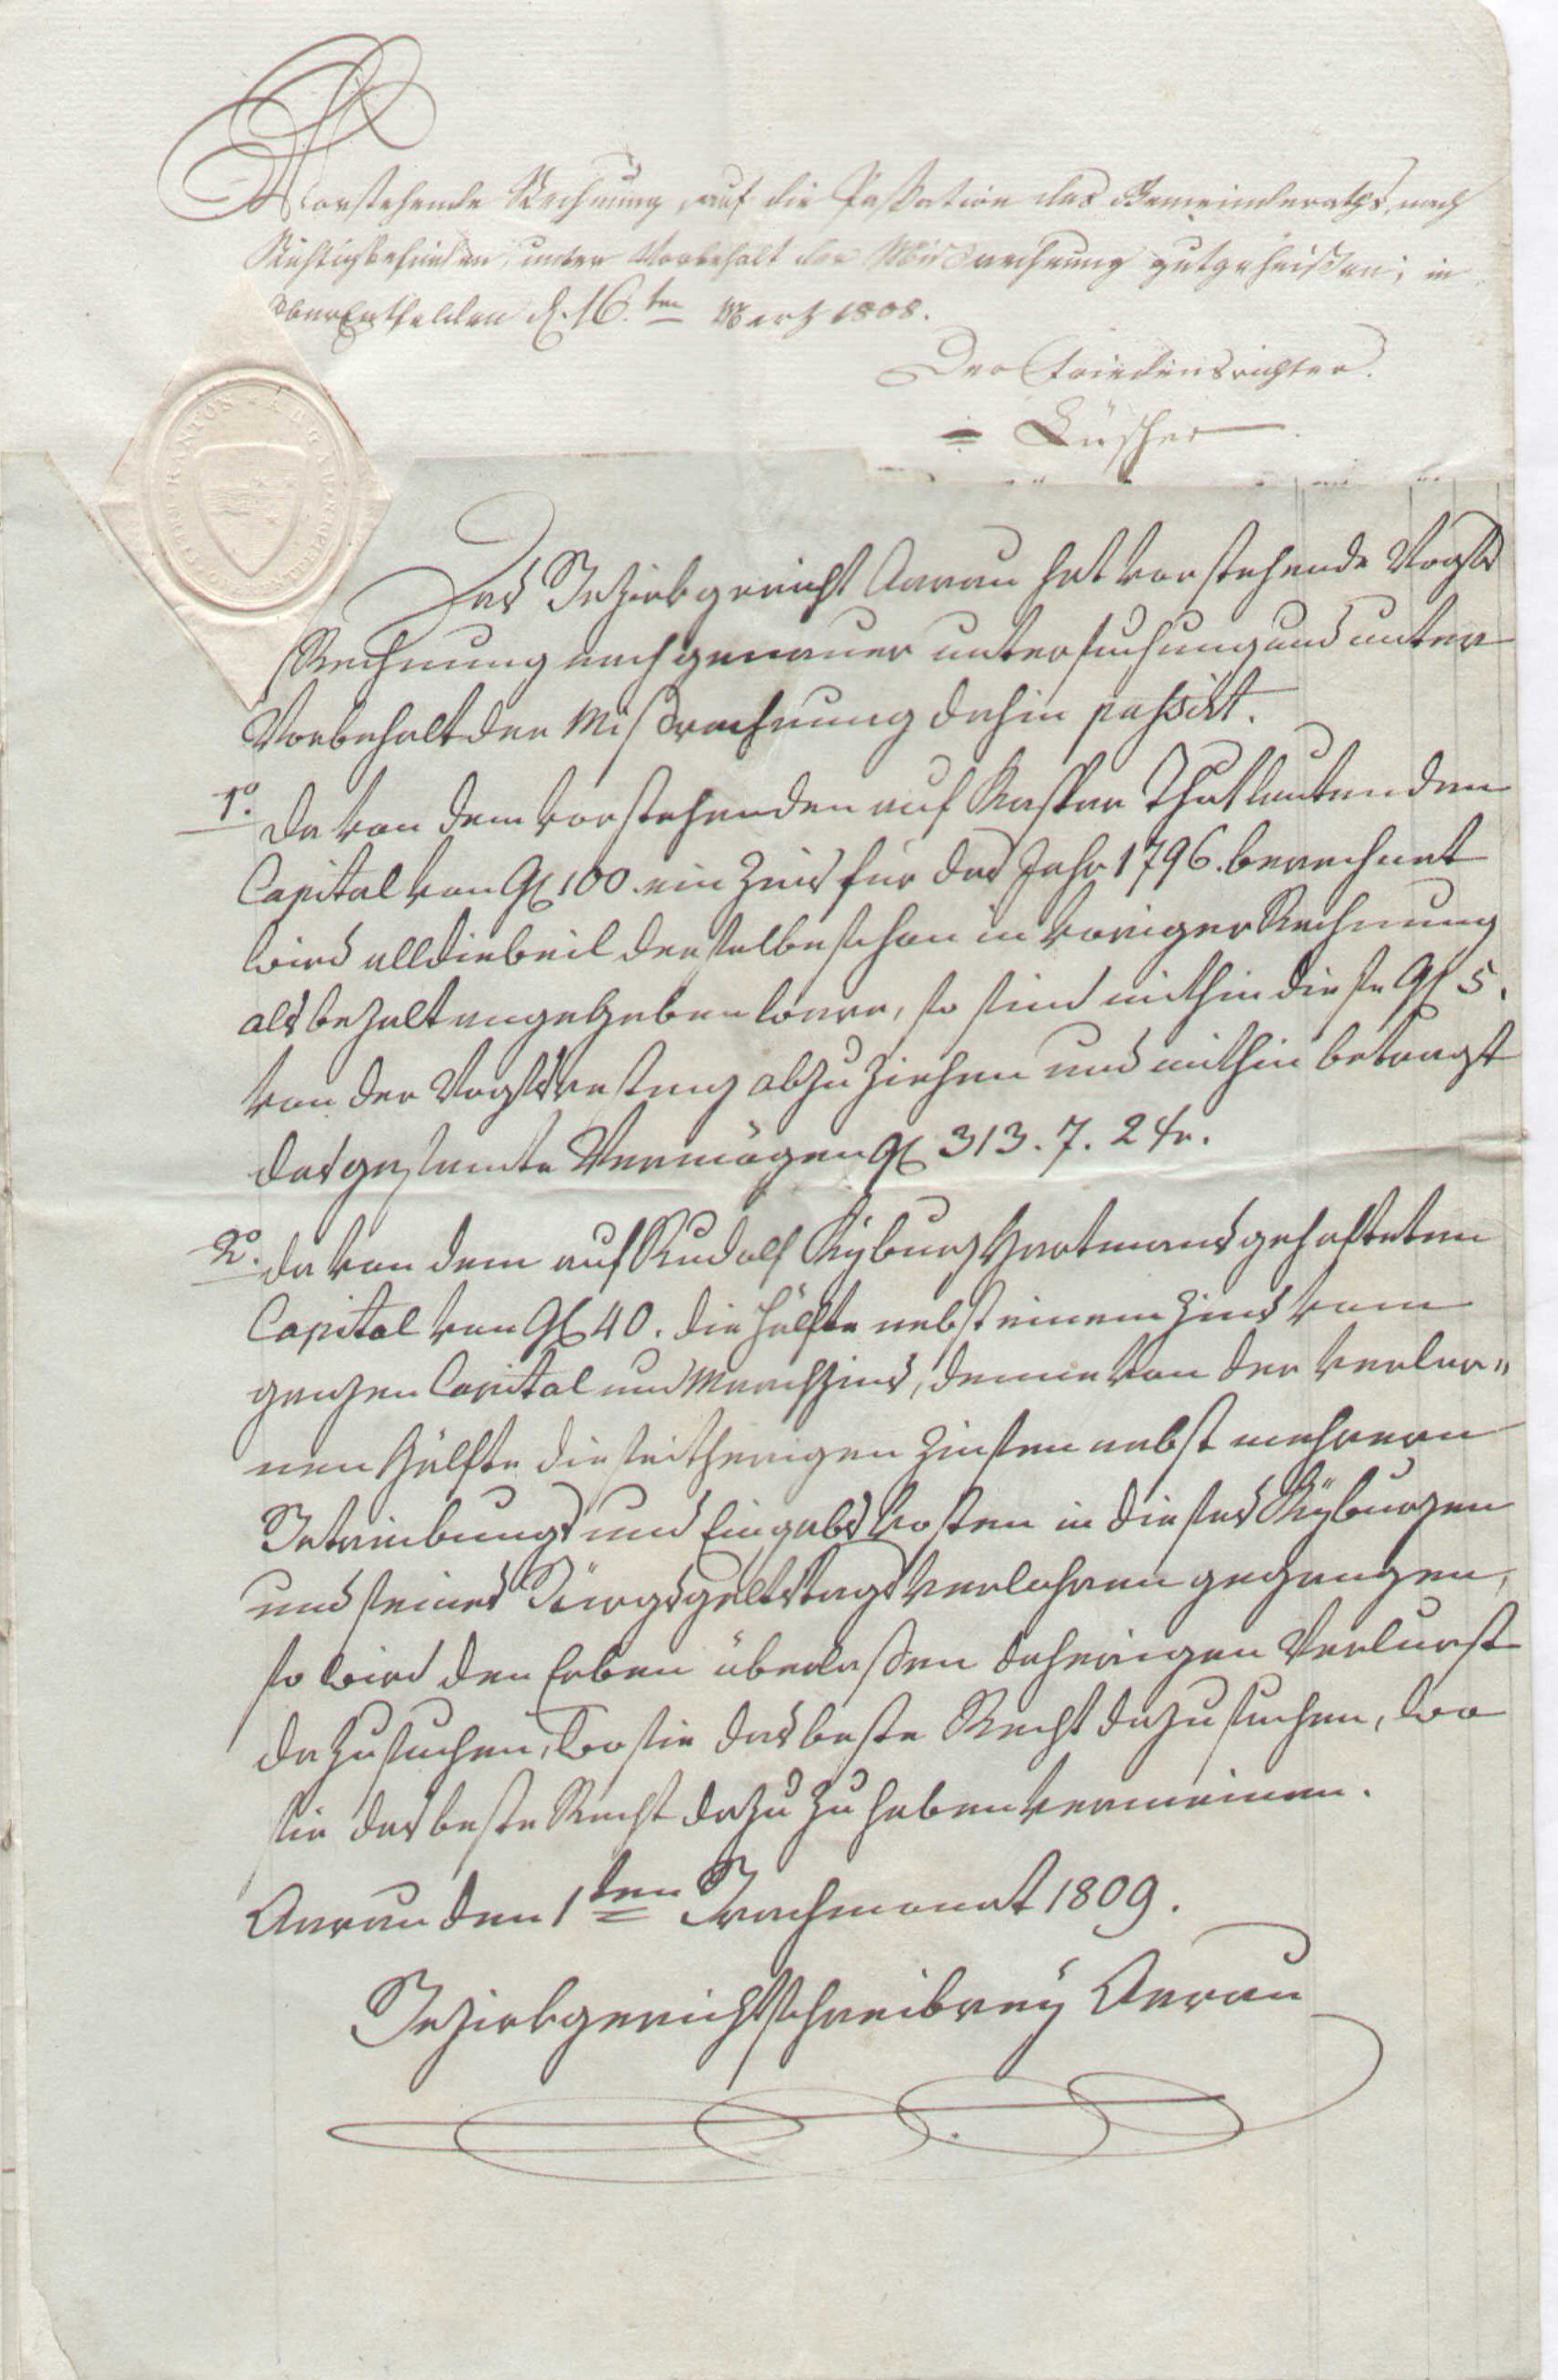 Vorstehende Rechnung, auf die Passation des Gemeinderaths, nach
Richtigbefinden, unter Vorbehalt der Mißrechnung gutgeheißen; in
OberEntfelden d. 16.ten Mertz 1808.
Der Friedensrichter.
Lüscher
KANTON ARGAU
Das Bezirksgericht Aarau hat vorstehende Vogts
Rechnung nach genauer untersuchung und unter
Vorbehalt der Mißrechnung dahin passirt.
1o. Da von dem vorstehenden auf Kaspar Thut lautenden
Capital von Gl 100 ein Zins für das Jahr 1796. berechnet
wird alldieweil derselbe schon in voriger Rechnung
als bezalt angegeben ware, so sind mithin diese Gl 5.
von der Vogtsrestanz abzuziehen und mithin betragt
das gesamte Vermögen Gl 313. 7. 2 kr.
2o. da von dem auf Rudolf Kyburz Hartmans gehafteten
Capital von Gl 40. die Hälfte nebst einem Zins vom
ganzen Capital und Marchzins, denne von der verlor„
nen Hälfte die seitherigen Zinsen nebst mehrern
Betreibungs und Eingabs Kosten in dieses Kyburzen
und seines Bürgs geltstags verlohren gegangen,
so wird den Erben überlaßen daherigen Verlurst
da zu suchen, wo sie das beste Recht dazu suchen, wo
sie das beste Recht dazu zu haben vermeinen.
Aarau den 1ten Brachmonat 1809.
Bezirksgerichtschreiberey Aarau